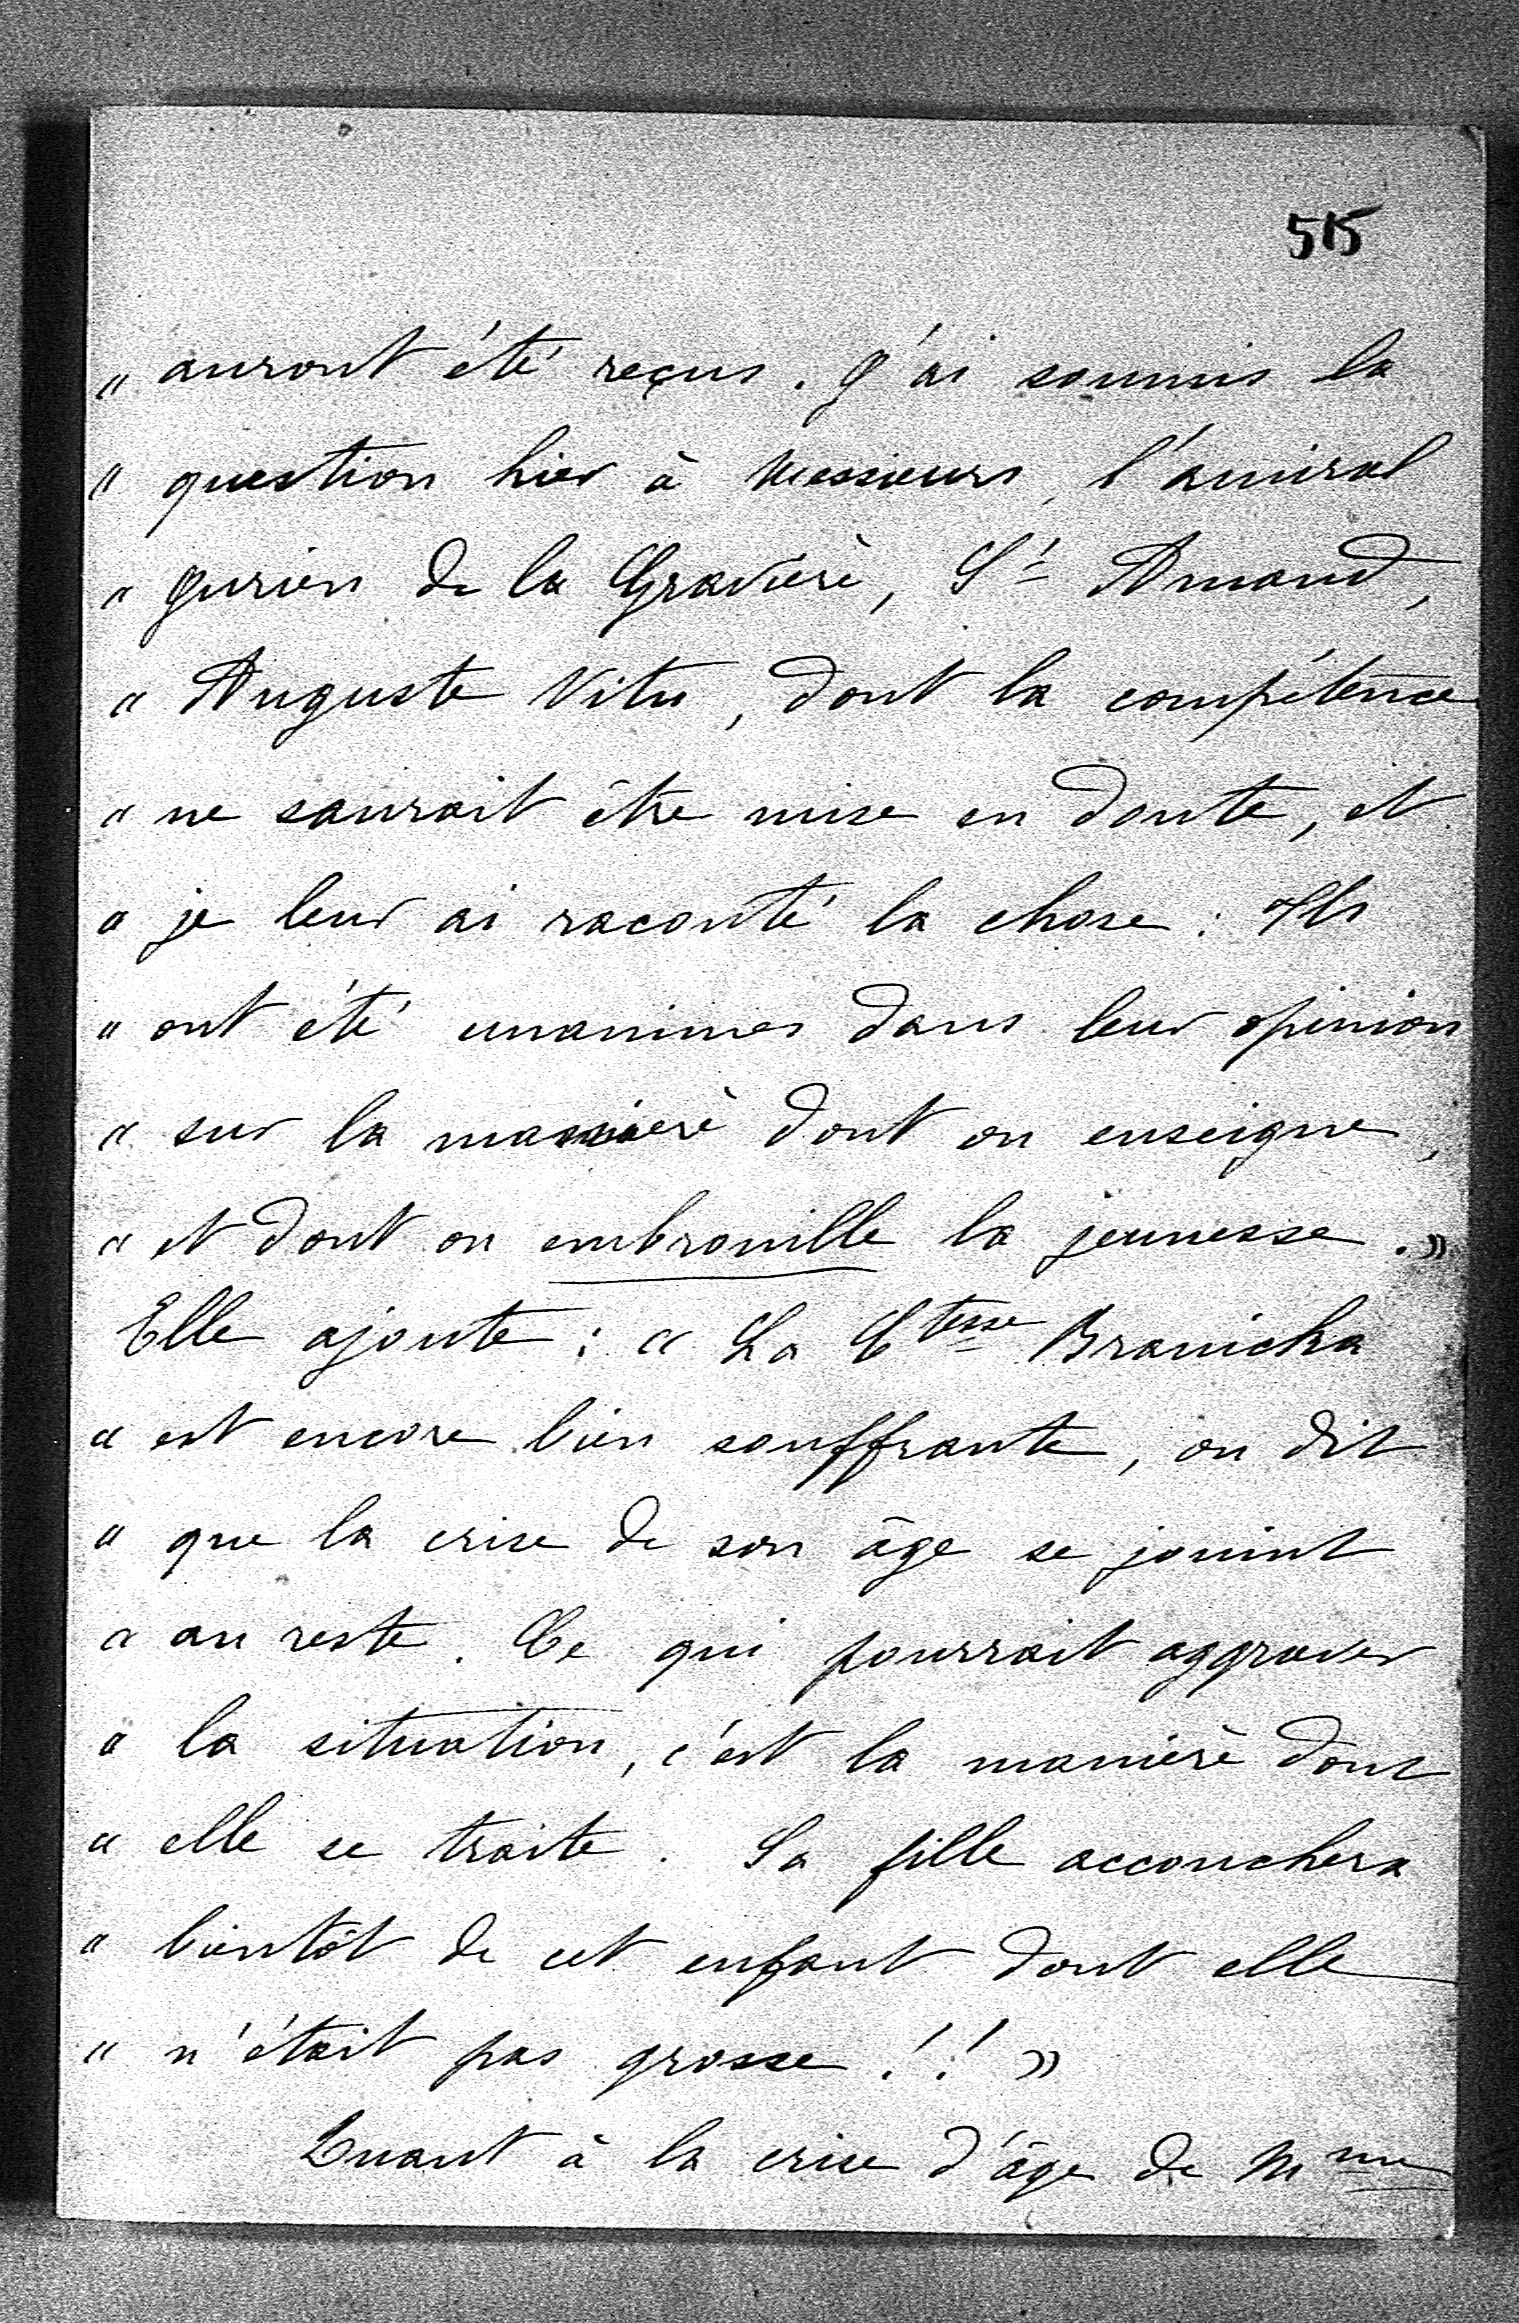 515
" auront été reçus. J'ai soumis la
" question hier à Messieurs, l'amiral
" Jurien de la Gravière, S<sup>t</sup> Amand,
" Auguste Vitu, dont la compétence
" ne saurait être mise en doute, et
" je leur ai raconté la chose : Ils
" ont été unanimes dans leur opinion
" sur la manière dont on enseigne,
" et dont on embrouille la jeunesse. »
Elle ajoute : « La C<sup>tesse</sup> Branicka
" est encore bien souffrante, on dit
" que la crise de son âge se joint
" au reste. Ce qui pourrait aggraver
" la situation, c'est la manière dont
" elle se traite. Sa fille accouchera
" bientôt de cet enfant dont elle
" n'était pas grosse !! »
Quant à la crise d'âge de M<sup>me</sup>